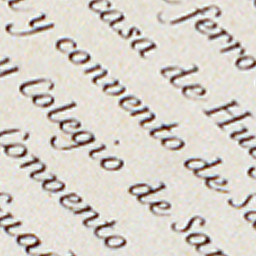 ferro
casa de Hue
y convento de Sa
y Colegio de San
Convento